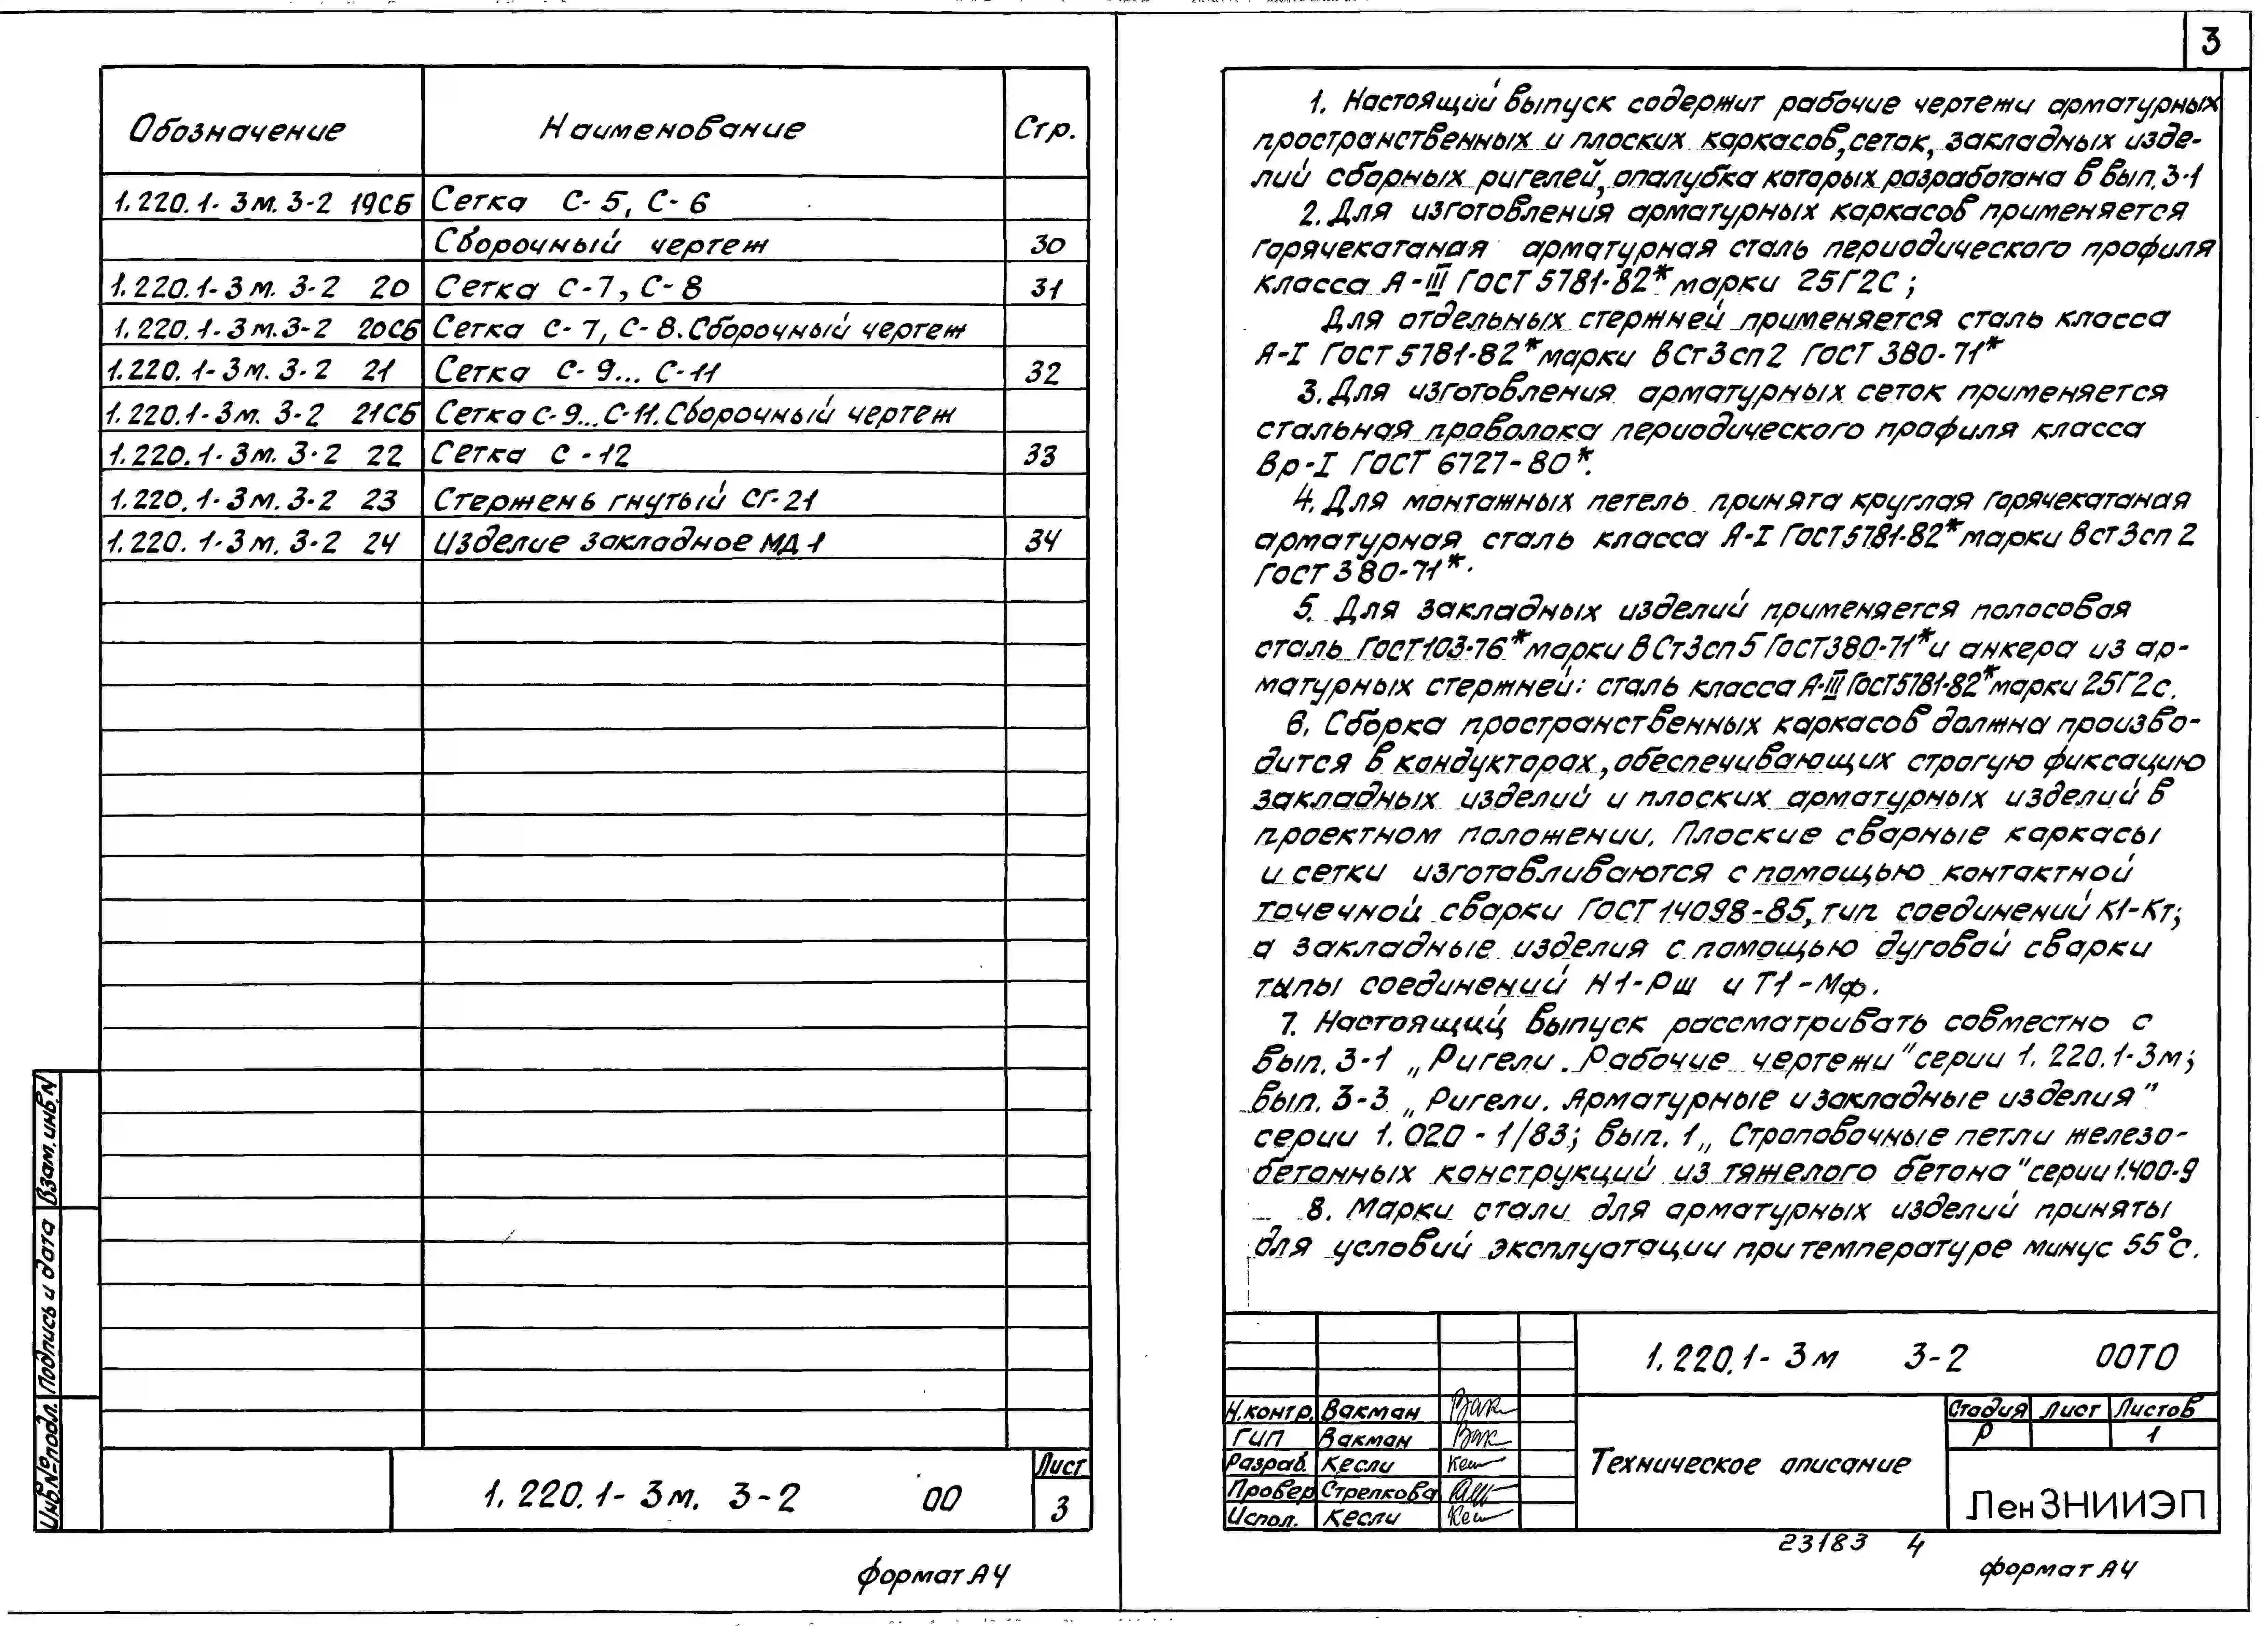 Обозначение Наименование Стр.
1.220.1-3м.3-2 19СБ Сетка С-5, С-6
Сборочный чертеж 30
1.220.1-3м.3-2 20 Сетка С-7, С-8 31
1.220.1-3м.3-2 20СБ Сетка С-7, С-8. Сборочный чертеж
1.220.1-3м.3-2 21 Сетка С-9... С-11 32
1.220.1-3м.3-2 21СБ Сетка С-9... С-11. Сборочный чертеж
1.220.1-3м.3-2 22 Сетка С-12 33
1.220.1-3м.3-2 23 Стержень гнутый СГ-21
1.220.1-3м.3-2 24 Изделие закладное МД1 34
Взам. инв.N
Подпись и дата
Инв.№ подл.
1.220.1-3м. 3-2 00
Лист
3
формат А4
3
1. Настоящий выпуск содержит рабочие чертежи арматурных
пространственных и плоских каркасов, сеток, закладных изде-
лий сборных ригелей, опалубка которых разработана в вып. 3-1
2. Для изготовления арматурных каркасов применяется
горячекатаная арматурная сталь периодического профиля
класса А-III ГОСТ 5781-82* марки 25Г2С;
Для отдельных стержней применяется сталь класса
А-I ГОСТ 5781-82* марки ВСт3сп2 ГОСТ 380-71*
3. Для изготовления арматурных сеток применяется
стальная проволока периодического профиля класса
Вр-I ГОСТ 6727-80*.
4. Для монтажных петель принята круглая горячекатаная
арматурная сталь класса А-I ГОСТ 5781-82* марки ВСт3сп2
ГОСТ 380-71*.
5. Для закладных изделий применяется полосовая
сталь ГОСТ 103-76* марки ВСт3сп5 ГОСТ 380-71* и анкера из ар-
матурных стержней: сталь класса А-III ГОСТ 5781-82* марки 25Г2с.
6. Сборка пространственных каркасов должна произво-
дится в кондукторах, обеспечивающих строгую фиксацию
закладных изделий и плоских арматурных изделий в
проектном положении. Плоские сварные каркасы
и сетки изготавливаются с помощью контактной
точечной сварки ГОСТ 14098-85, тип соединений К1-Кт;
а закладные изделия с помощью дуговой сварки
типы соединений Н1-Рш и Т1-Мф.
7. Настоящий выпуск рассматривать совместно с
вып. 3-1 „Ригели. Рабочие чертежи" серии 1.220.1-3м;
вып. 3-3 „Ригели. Арматурные и закладные изделия"
серии 1.020-1/83; вып. 1 „Строповочные петли железо-
бетонных конструкций из тяжелого бетона" серии 1.400-9
8. Марки стали для арматурных изделий приняты
для условий эксплуатации при температуре минус 55°С.
1.220.1-3м 3-2 00ТО
Н.контр. Вакман
ГИП Вакман
Разраб. Кесли
Провер Стрелкова
Испол. Кесли
Техническое описание
Стадия Лист Листов
Р 1
ЛенЗНИИЭП
23183 4
формат А4